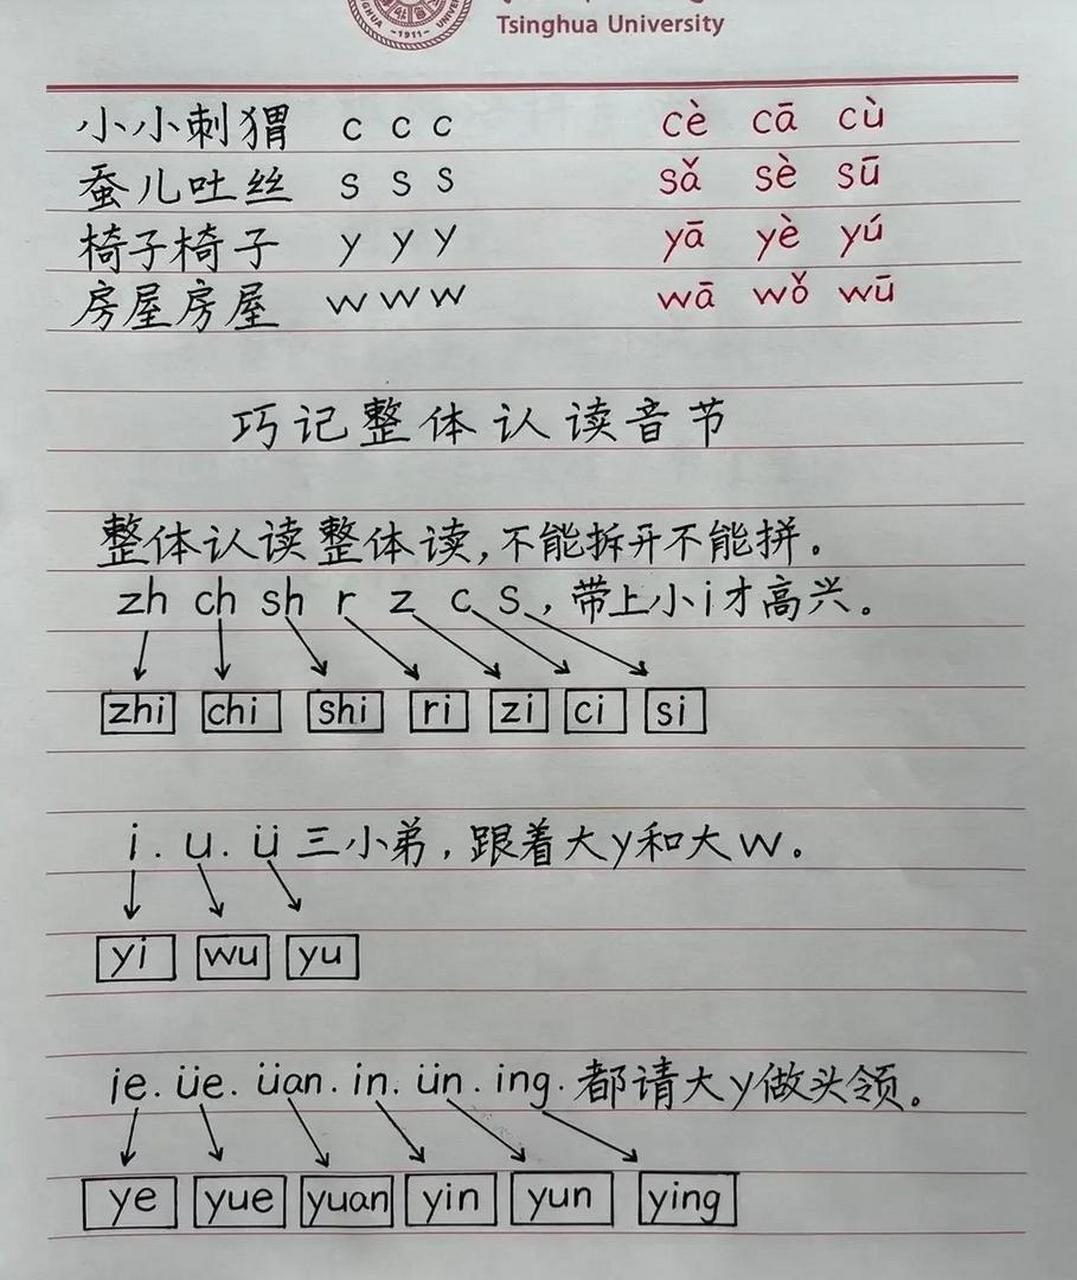 Tsinghua University
TSINGHUA -1911- UNIVERSITY
小小刺猬 c c c cè cā cù
蚕儿吐丝 s s s sǎ sè sū
椅子椅子 y y y yā yè yú
房屋房屋 w w w wā wǒ wū
巧记整体认读音节
整体认读整体读,不能拆开不能拼。
zh ch sh r z c s,带上小i才高兴。
zhi chi shi ri zi ci si
i.u.ü三小弟,跟着大y和大w。
yi wu yu
ie.üe.üan.in.ün.ing.都请大y做头领。
ye yue yuan yin yun ying